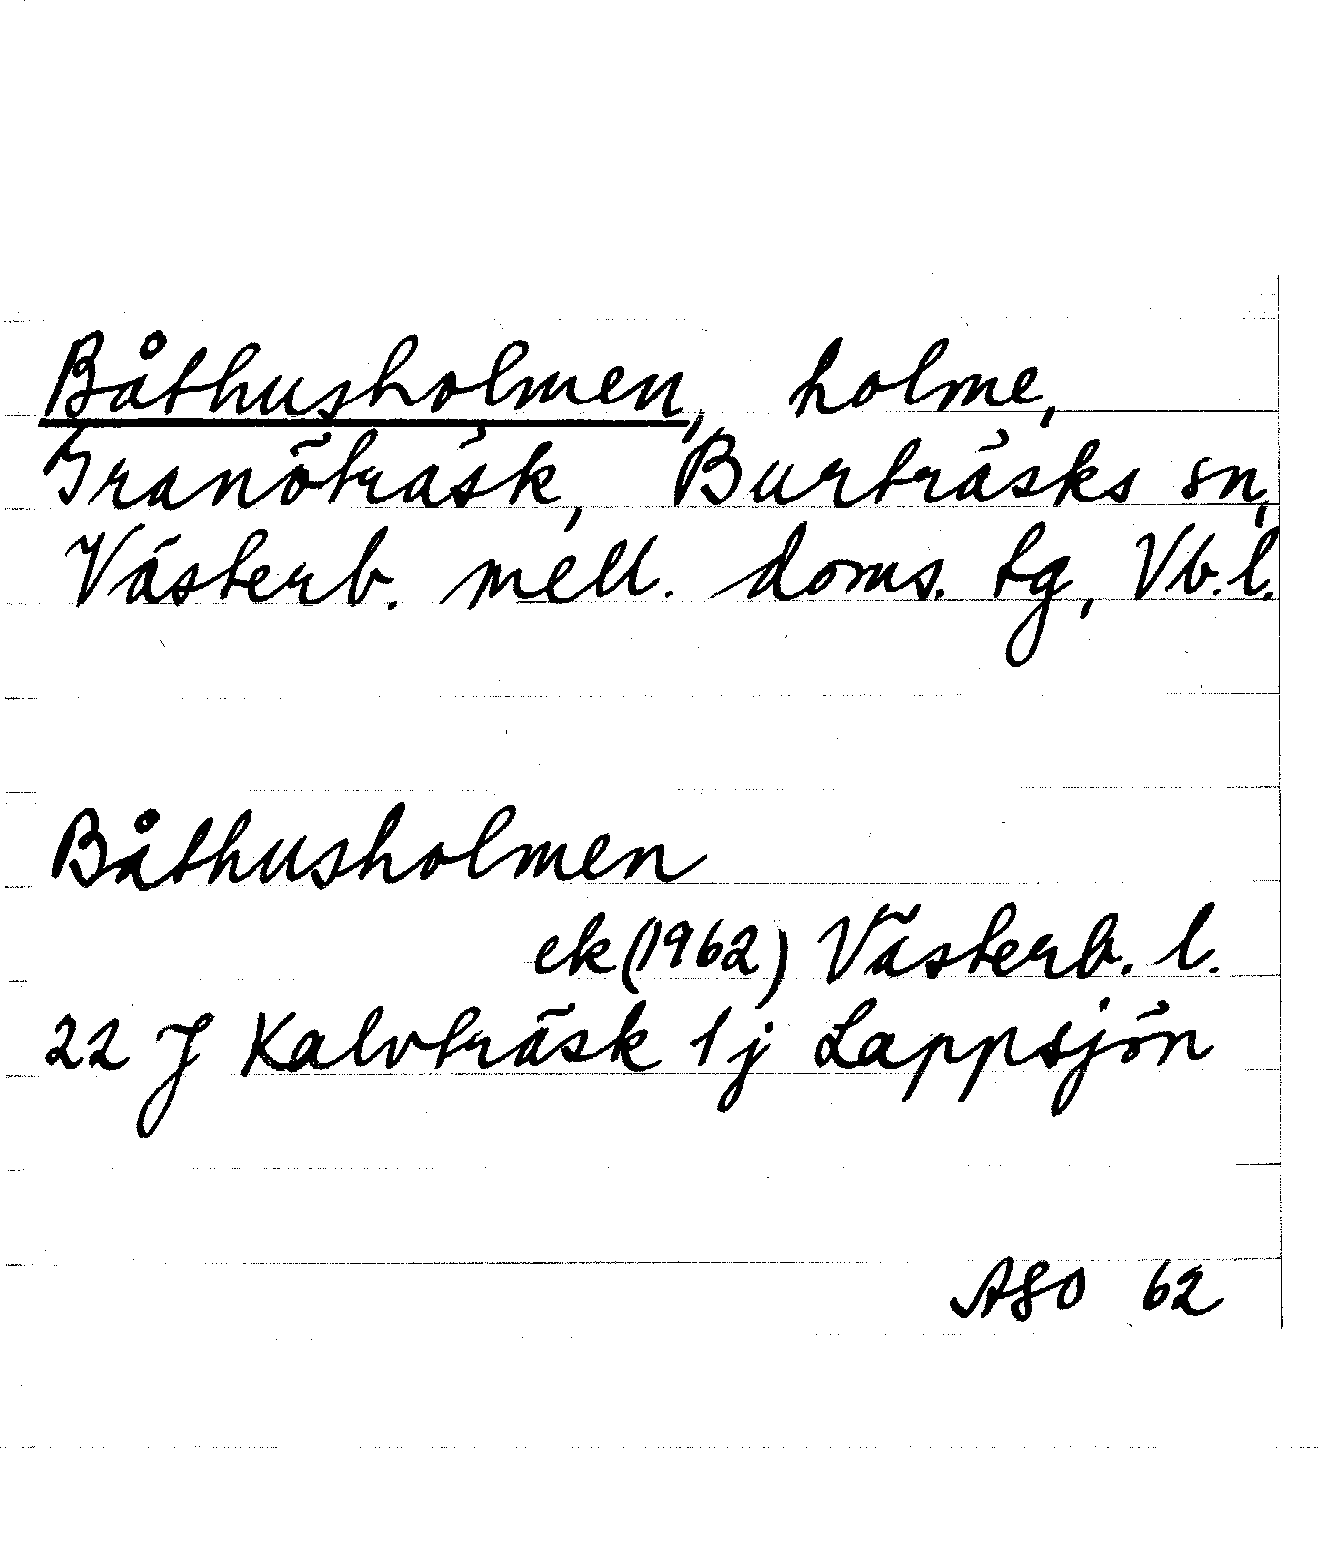 Båthusholmen, holme,
Granöträsk, Burträsks sn,
Västerb. mell. doms. tg, Vb.l.
Båthusholmen
ek (1962) Västerb. l.
22 J Kalvträsk 1 j Lappsjön
ASO 62